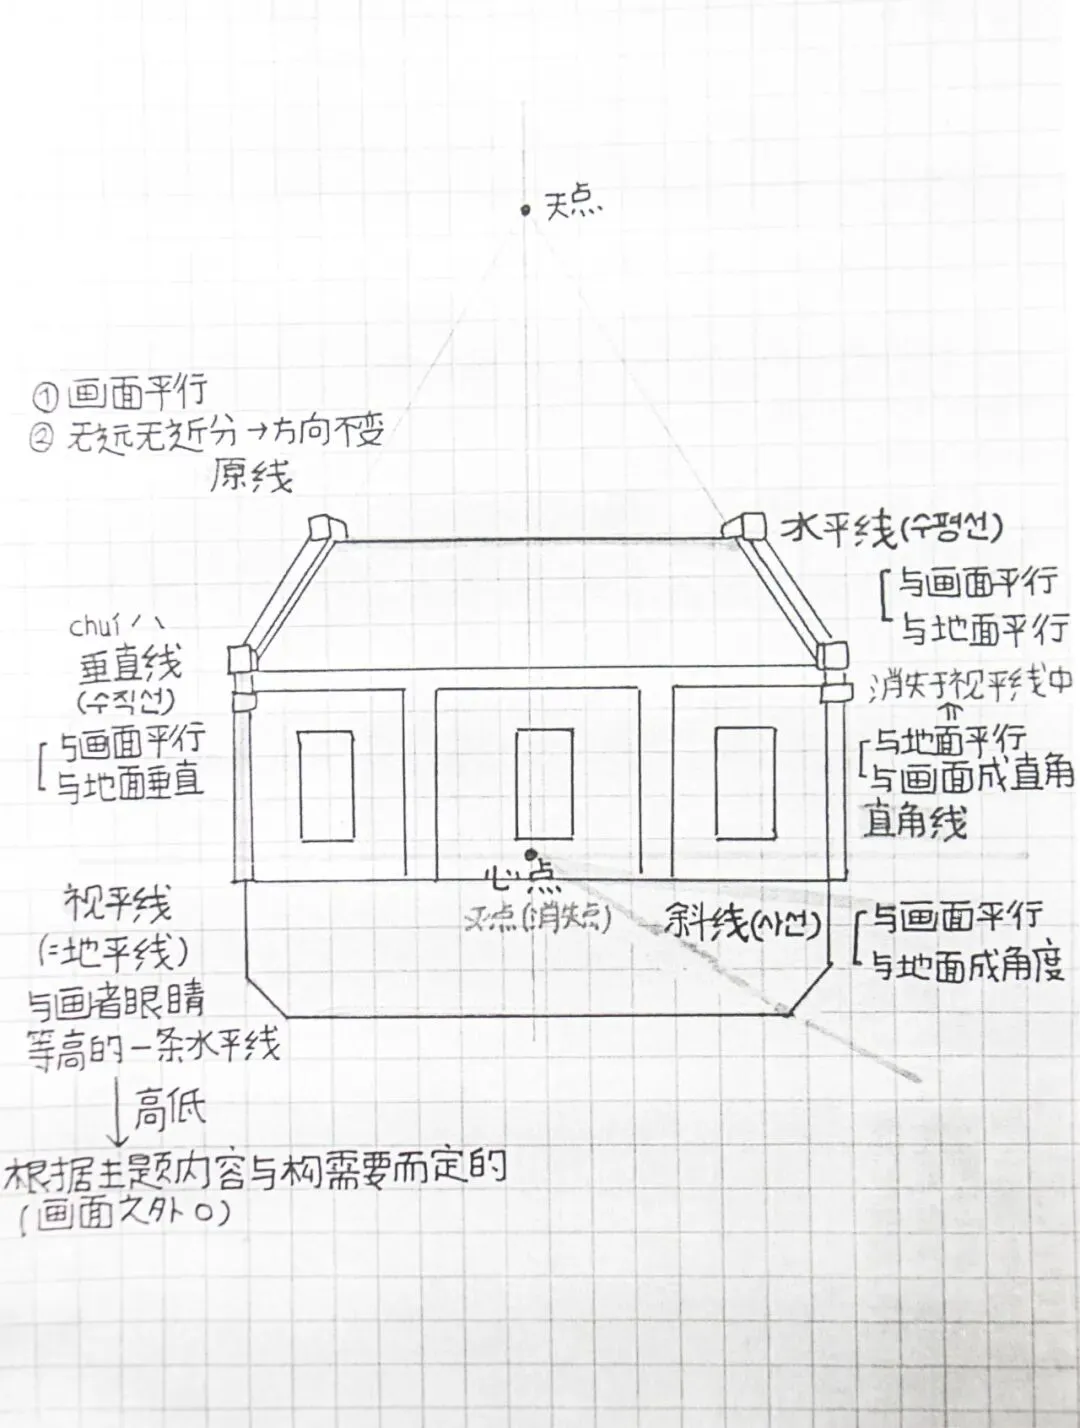 天点
①画面平行
②无远无近分→方向不变
原线
水平线(수평선)
与画面平行
与地面平行
chuí
垂直线
(수직선)
与画面平行
与地面垂直
消失于视平线中
与地面平行
与画面成直角
直角线
心点
灭点(消失点)
斜线(사선)
与画面平行
与地面成角度
视平线
(=地平线)
与画者眼睛
等高的一条水平线
高低
根据主题内容与构需要而定的
(画面之外O)